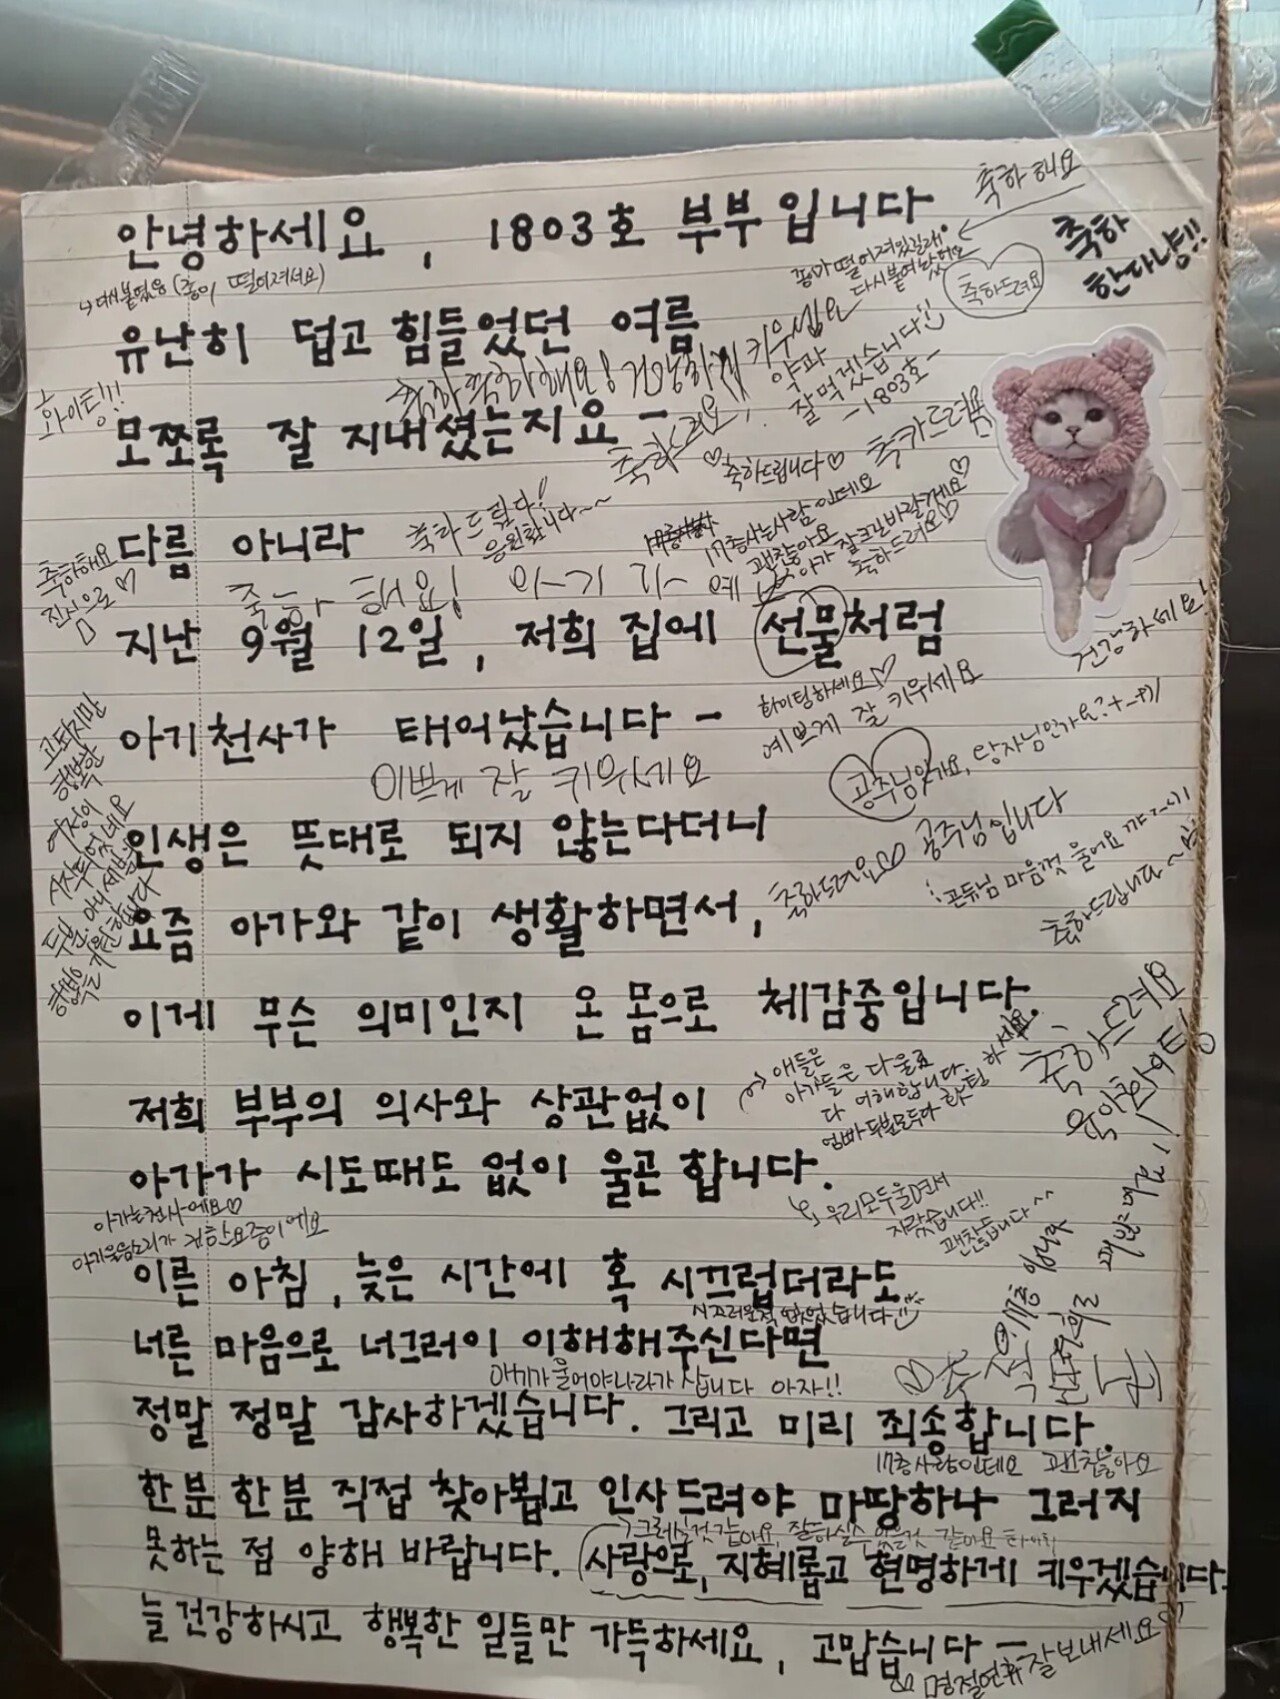 안녕하세요, 1803호 부부입니다.
축하해요
축하
한다냥!!
↳ 다시붙였음 (종이 떨어져서요)
종이 떨어져있길래
다시붙여놨어요
축하드려요
유난히 덥고 힘들었던 여름
축하축하해요! 건강하게 키우세요
약과
잘먹겠습니다
-1803호-
화이팅!!!
모쪼록 잘 지내셨는지요 -
축하드려요,
♡축하드립니다♡
축하드려요
다름 아니라
축하드립니다!
응원합니다~~
17층사는사람인데요
괜찮아요
아가 잘크길바랄게요♡
축하드려요♡
축하해요
진심으로♡
축하해요! 아기가 예뻐요
지난 9월 12일, 저희 집에 선물처럼
건강하세요!
아기천사가 태어났습니다 -
화이팅하세요♡
예쁘게 잘 키우세요
이쁘게 잘 키우세요
공주님인가요, 왕자님인가요?
공주님입니다
고되지만
행복한
여정이
시작되었네요
두분, 아니 세분의
행복을 기원합니다
인생은 뜻대로 되지 않는다더니
공듀님 마음껏 울어요
요즘 아가와 같이 생활하면서,
축하드려요♡
축하드립니다~
이게 무슨 의미인지 온 몸으로 체감중입니다.
축하드려요
육아화이팅!
저희 부부의 의사와 상관없이
애들은
아가들은 다울죠
다 이해합니다.
엄빠 두분모두다 화팅 하세요
아가가 시도때도 없이 울곤 합니다.
우리모두울면서
자랐습니다!!
괜찮습니다^^
아가는천사에요♡
아기울음소리가 귀한요즘이에요
이른 아침, 늦은 시간에 혹 시끄럽더라도
시끄러운적 없었습니다
너른 마음으로 너그러이 이해해주신다면
아기가울어야나라가 삽니다 아자!!
정말 정말 감사하겠습니다. 그리고 미리 죄송합니다.
17층사람인데요 괜찮아요
한분 한분 직접 찾아뵙고 인사드려야 마땅하나 그러지
그러는것 같아요, 잘하실수있을것 같아요
못하는 점 양해 바랍니다. 사랑으로, 지혜롭고 현명하게 키우겠습니다.
늘 건강하시고 행복한 일들만 가득하세요, 고맙습니다 -
명절연휴 잘보내세요♡